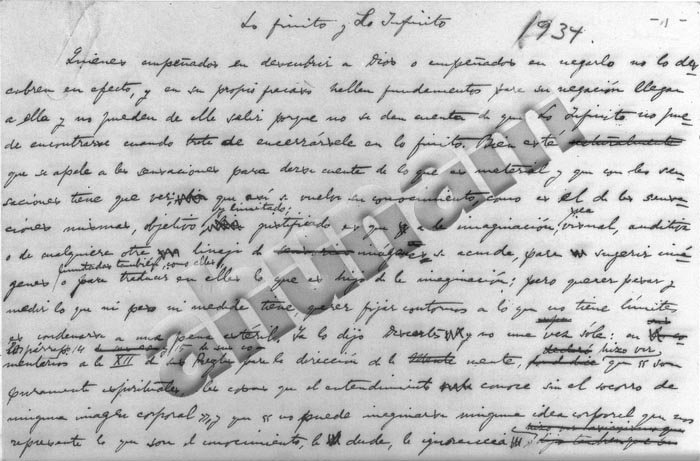 Lo finito y Lo Infinito
1934.
Quienes empeñados en descubrir a Dios o empeñados en negarlo no lo des
cubren en efecto, y en su propio fracaso hallan fundamentos para su negación llegan
a ella y no pueden de ella salir porque no se dan cuenta de que Lo Infinito no pue
de encontrarse cuando trate de encerrársele en lo finito. Bien está naturalmente
que se apele a las sensaciones para darse cuenta de lo que es material y que con las sen
saciones tiene que ver, que así se vuelve su conocimiento, como es el de las sensa
y limitado;
ciones mismas, objetivo justificado es que a la imaginación, sea visual, auditiva
o de cualquiera otro linaje de imágenes se acuda para sugerir imá
limitadas también, como ellas,
genes o para traducir en ellas lo que es hijo de la imaginación; pero querer pesar y
medir lo que ni peso ni medida tiene querer fijar contornos a lo que no tiene límites
es condenarse a una pena estéril. Ya lo dijo Descartes y no una vez sola: en
los párrfs. 14 de sus co
mentarios a la XII de sus Reglas para la dirección de la mente, hizo ver que "son
puramente espirituales las cosas que el entendimiento conoce sin el socorro de
ninguna imagen corporal", y que "no puede imaginarse ninguna idea corporal que nos
represente lo que son el conocimiento, la duda, la ignorancia
ahunam